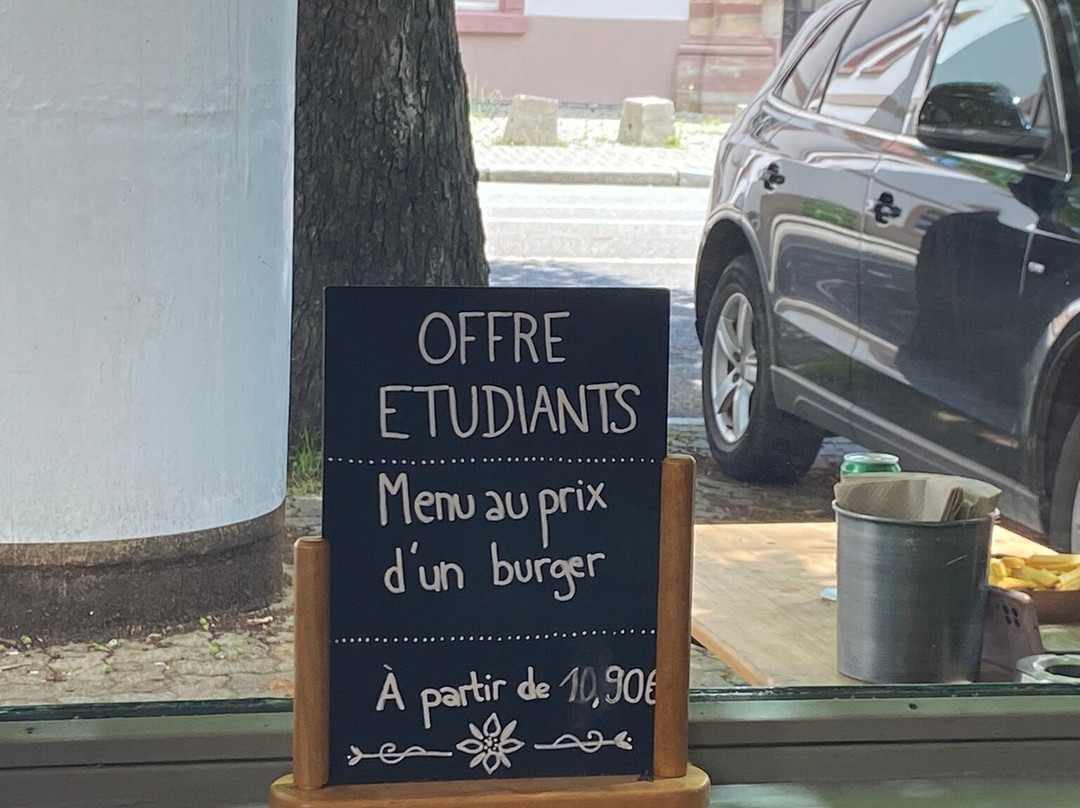 OFFRE
ETUDIANTS
Menu au prix
d'un burger
À partir de 10,90€